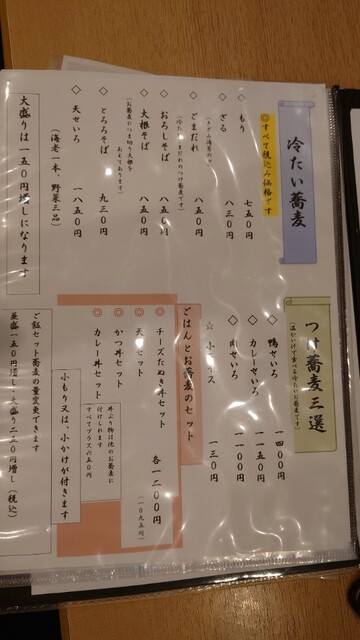 冷たい蕎麦
◎すべて税込み価格です
◇もり 七五〇円
◇ざる 八三〇円
(きざみ海苔のせ)
◇ごまだれ 八五〇円
(冷たいごまだれのつけ蕎麦です)
◇おろしそば 八五〇円
◇大根そば 八五〇円
(お蕎麦につま切り大根をあえてあります)
◇とろろそば 九三〇円
◇天せいろ 一八五〇円
(海老一本、野菜三品)
大盛りは一五〇円増しになります
つけ蕎麦三選
(温かいつけ汁で食べる冷たいお蕎麦です)
◇鴨せいろ 一四〇〇円
◇カレーせいろ 一一五〇円
◇肉せいろ 一一〇〇円
☆小ライス 一三〇円
ごはんとお蕎麦のセット
◎チーズたぬき丼セット
◎天丼セット
◎かつ丼セット
◎カレー丼セット
各一二〇〇円
(一〇九五円)
丼ぶり物は他のお蕎麦に
付けられます
すべてプラス六五〇円
小もり又は、小かけが付きます
ご飯セット蕎麦の量変更できます
並盛一五〇円増し・大盛り二三〇円増し(税込)